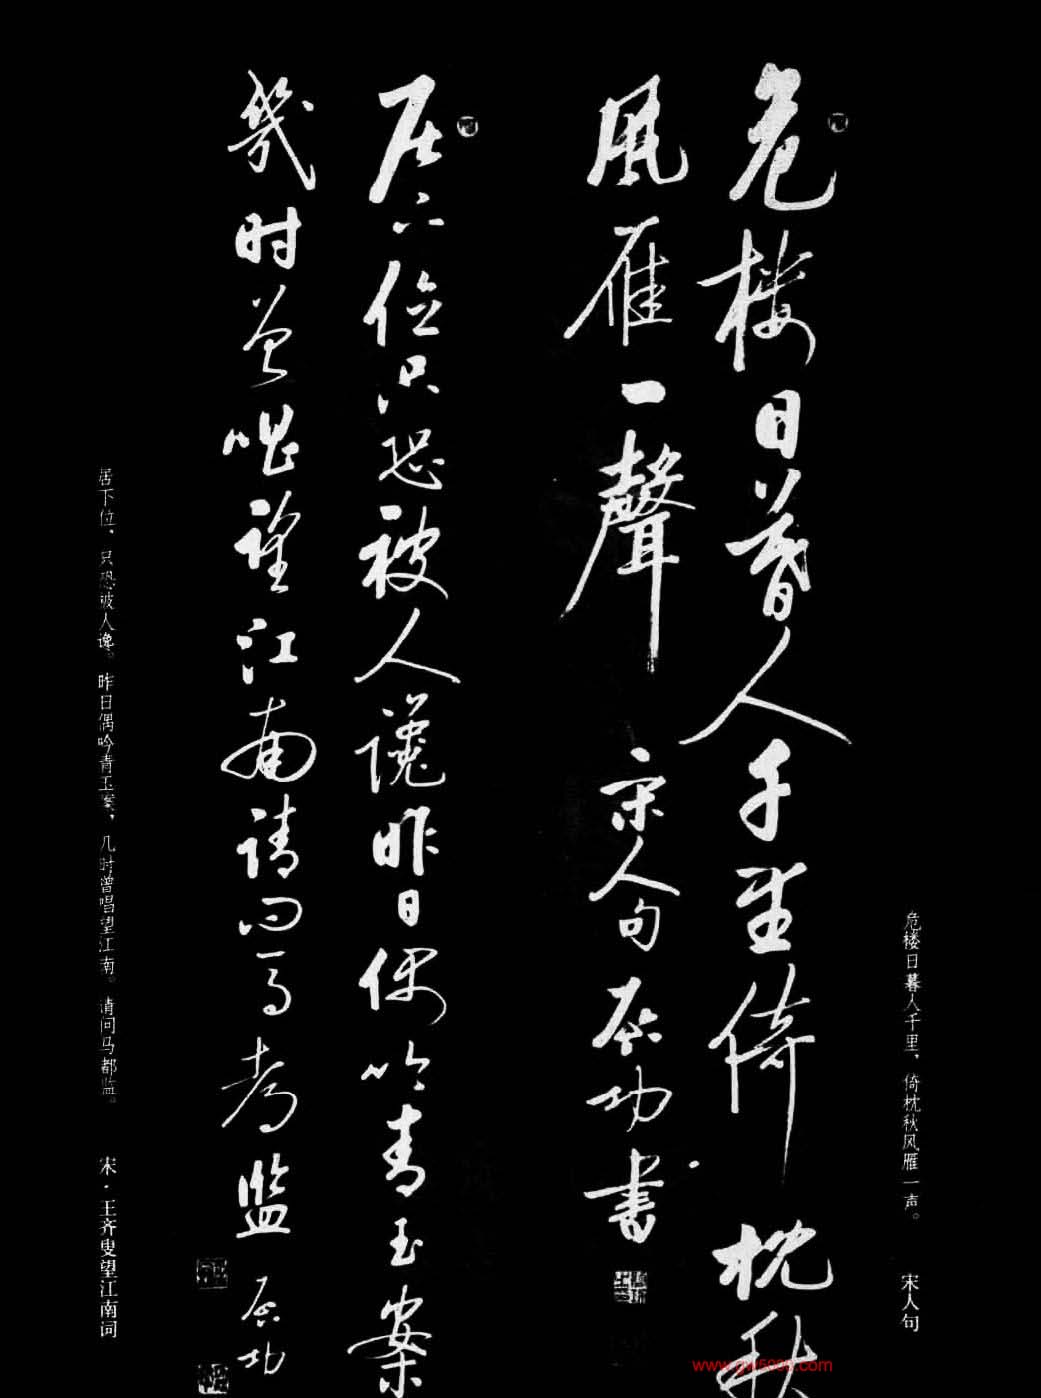 危楼日暮人千里倚枕秋
风雁一聲 宋人句 启功書
居下位只恐被人讒昨日偶吟青玉案
幾时曾唱望江南请问马都监 启功
危楼日暮人千里，倚枕秋风雁一声。 宋人句
居下位，只恐被人谗。昨日偶吟青玉案，几时曾唱望江南。请问马都监。 宋·王齐叟望江南词